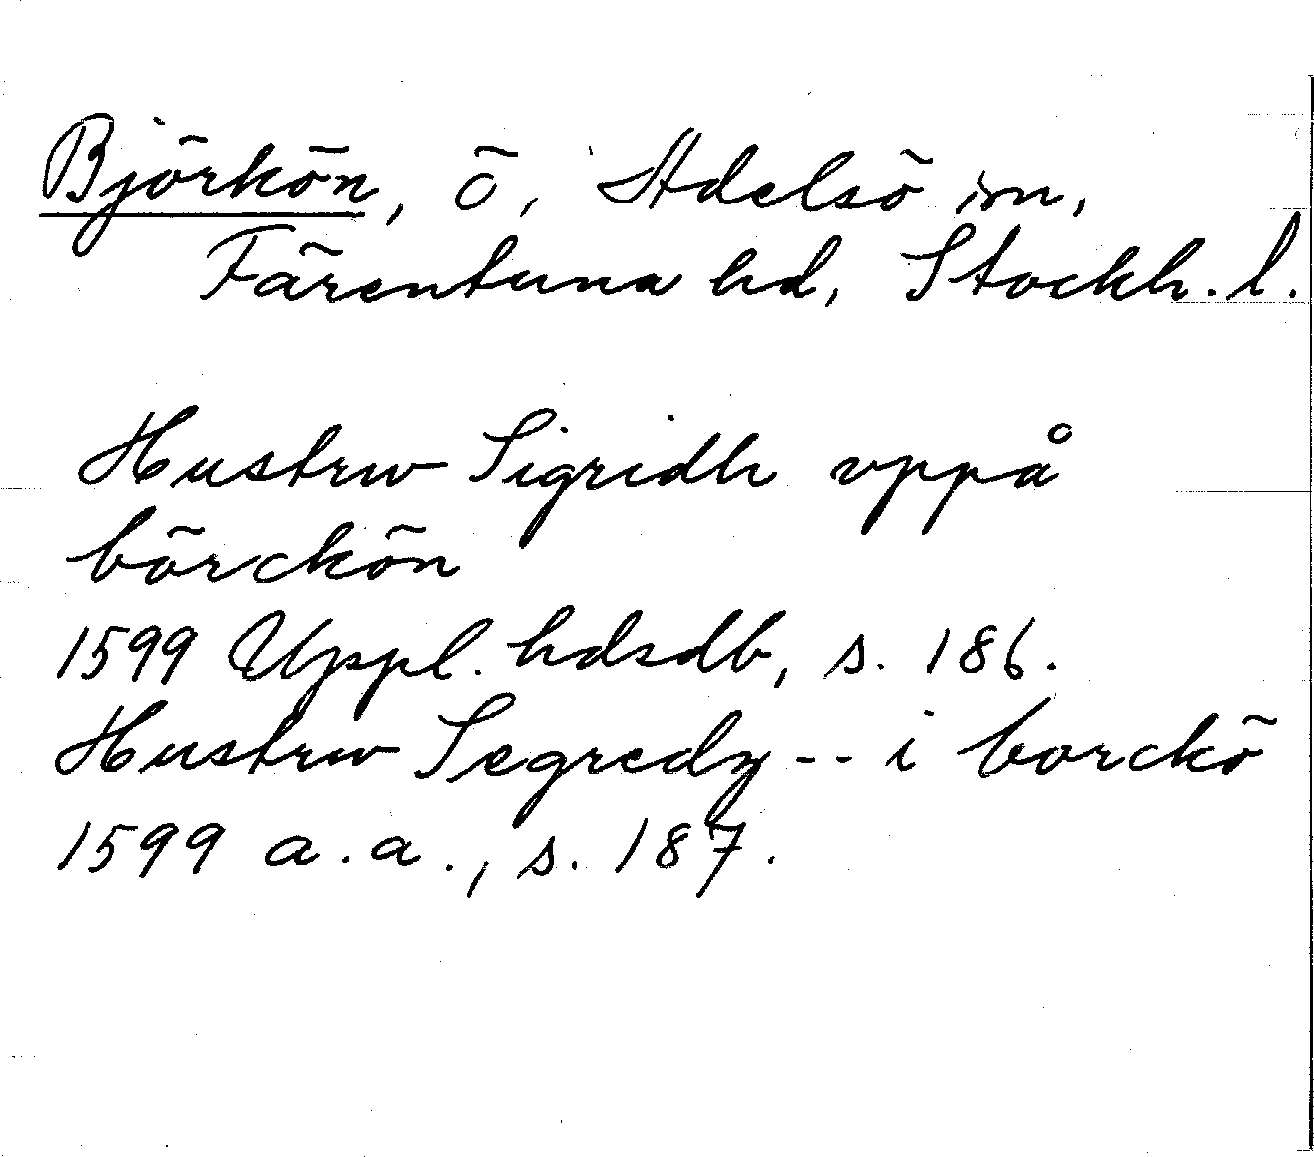 Björkön, ö, Adelsö sn,
Färentuna hd, Stockh. l.
Hustrw Sigridh vppå
börckön
1599 Uppl. hdsdb, s. 186.
Hustrw Segredz -- i borckö
1599 a.a., s. 187.